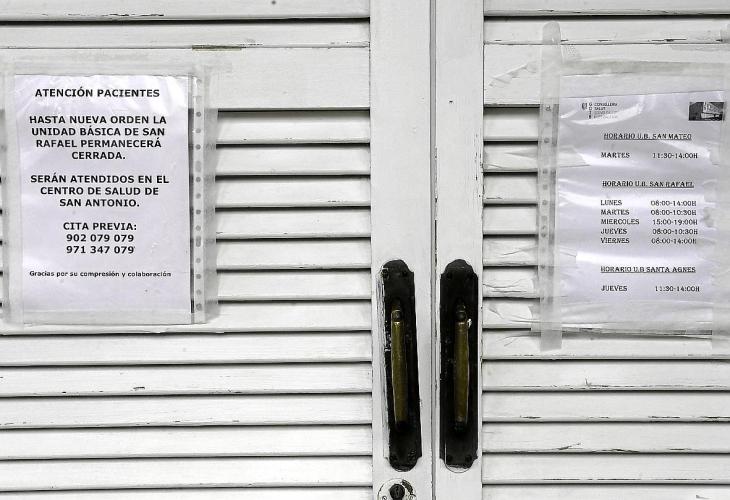 ATENCIÓN PACIENTES
HASTA NUEVA ORDEN LA
UNIDAD BÁSICA DE SAN
RAFAEL PERMANECERÁ
CERRADA.
SERÁN ATENDIDOS EN EL
CENTRO DE SALUD DE
SAN ANTONIO.
CITA PREVIA:
902 079 079
971 347 079
Gracias por su compresión y colaboración
CONSELLERIA
SALUT
HORARIO U.B. SAN MATEO
MARTES 11:30-14:00H
HORARIO U.B. SAN RAFAEL
LUNES 08:00-14:00H
MARTES 08:00-10:30H
MIERCOLES 15:00-19:00H
JUEVES 08:00-10:30H
VIERNES 08:00-14:00H
HORARIO U.B SANTA AGNES
JUEVES 11:30-14:00H